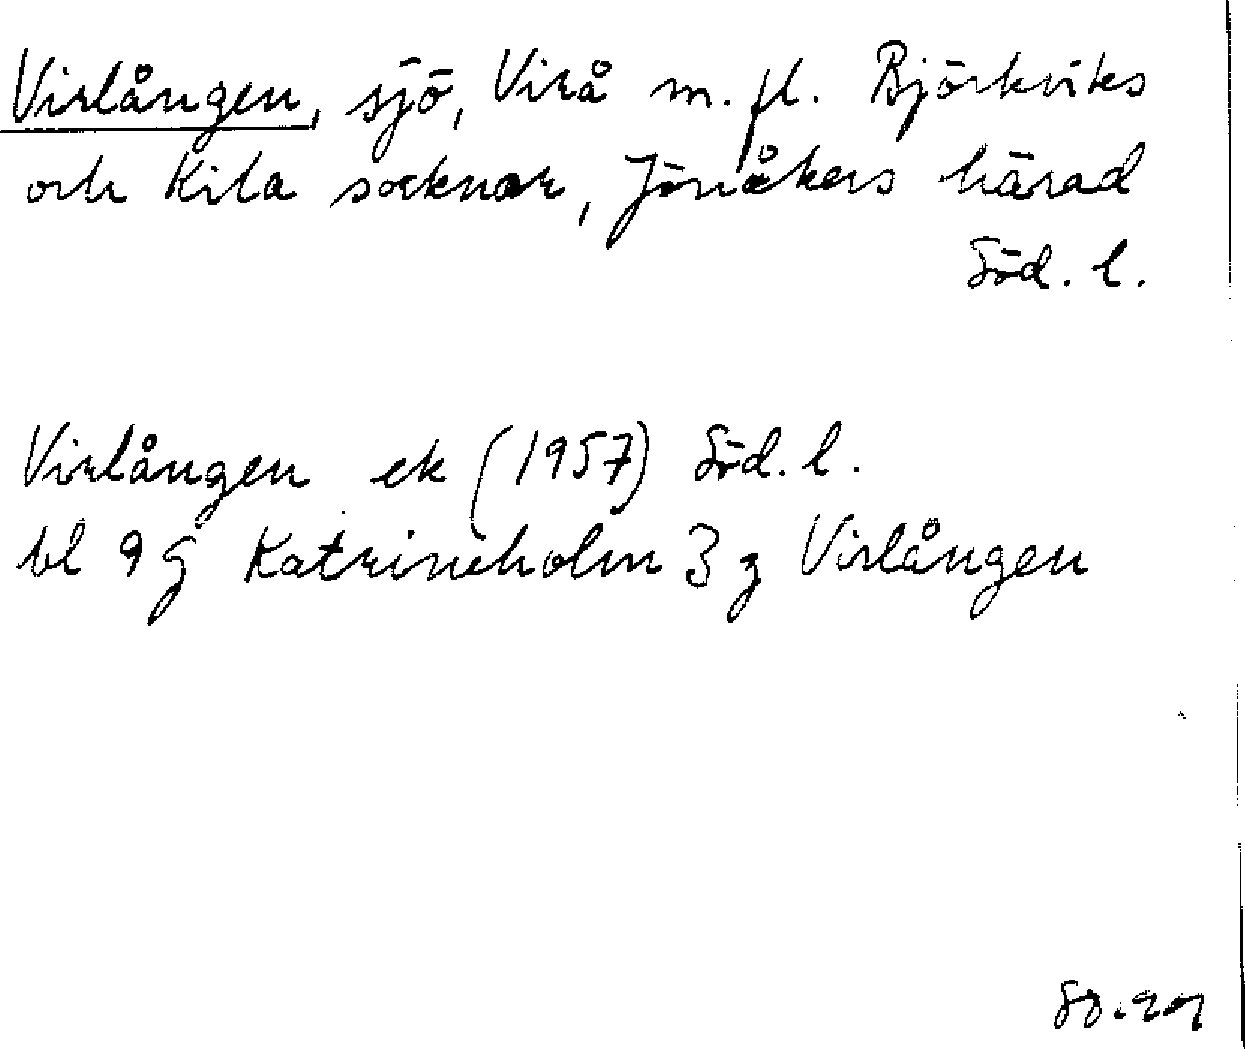 Virlången, sjö, Virå m. fl. Björkviks
och Kila socknar, Jönåkers härad
Söd. l.
Virlången ek (1957) Söd. l.
bl 9 G Katrineholm 3 g Virlången